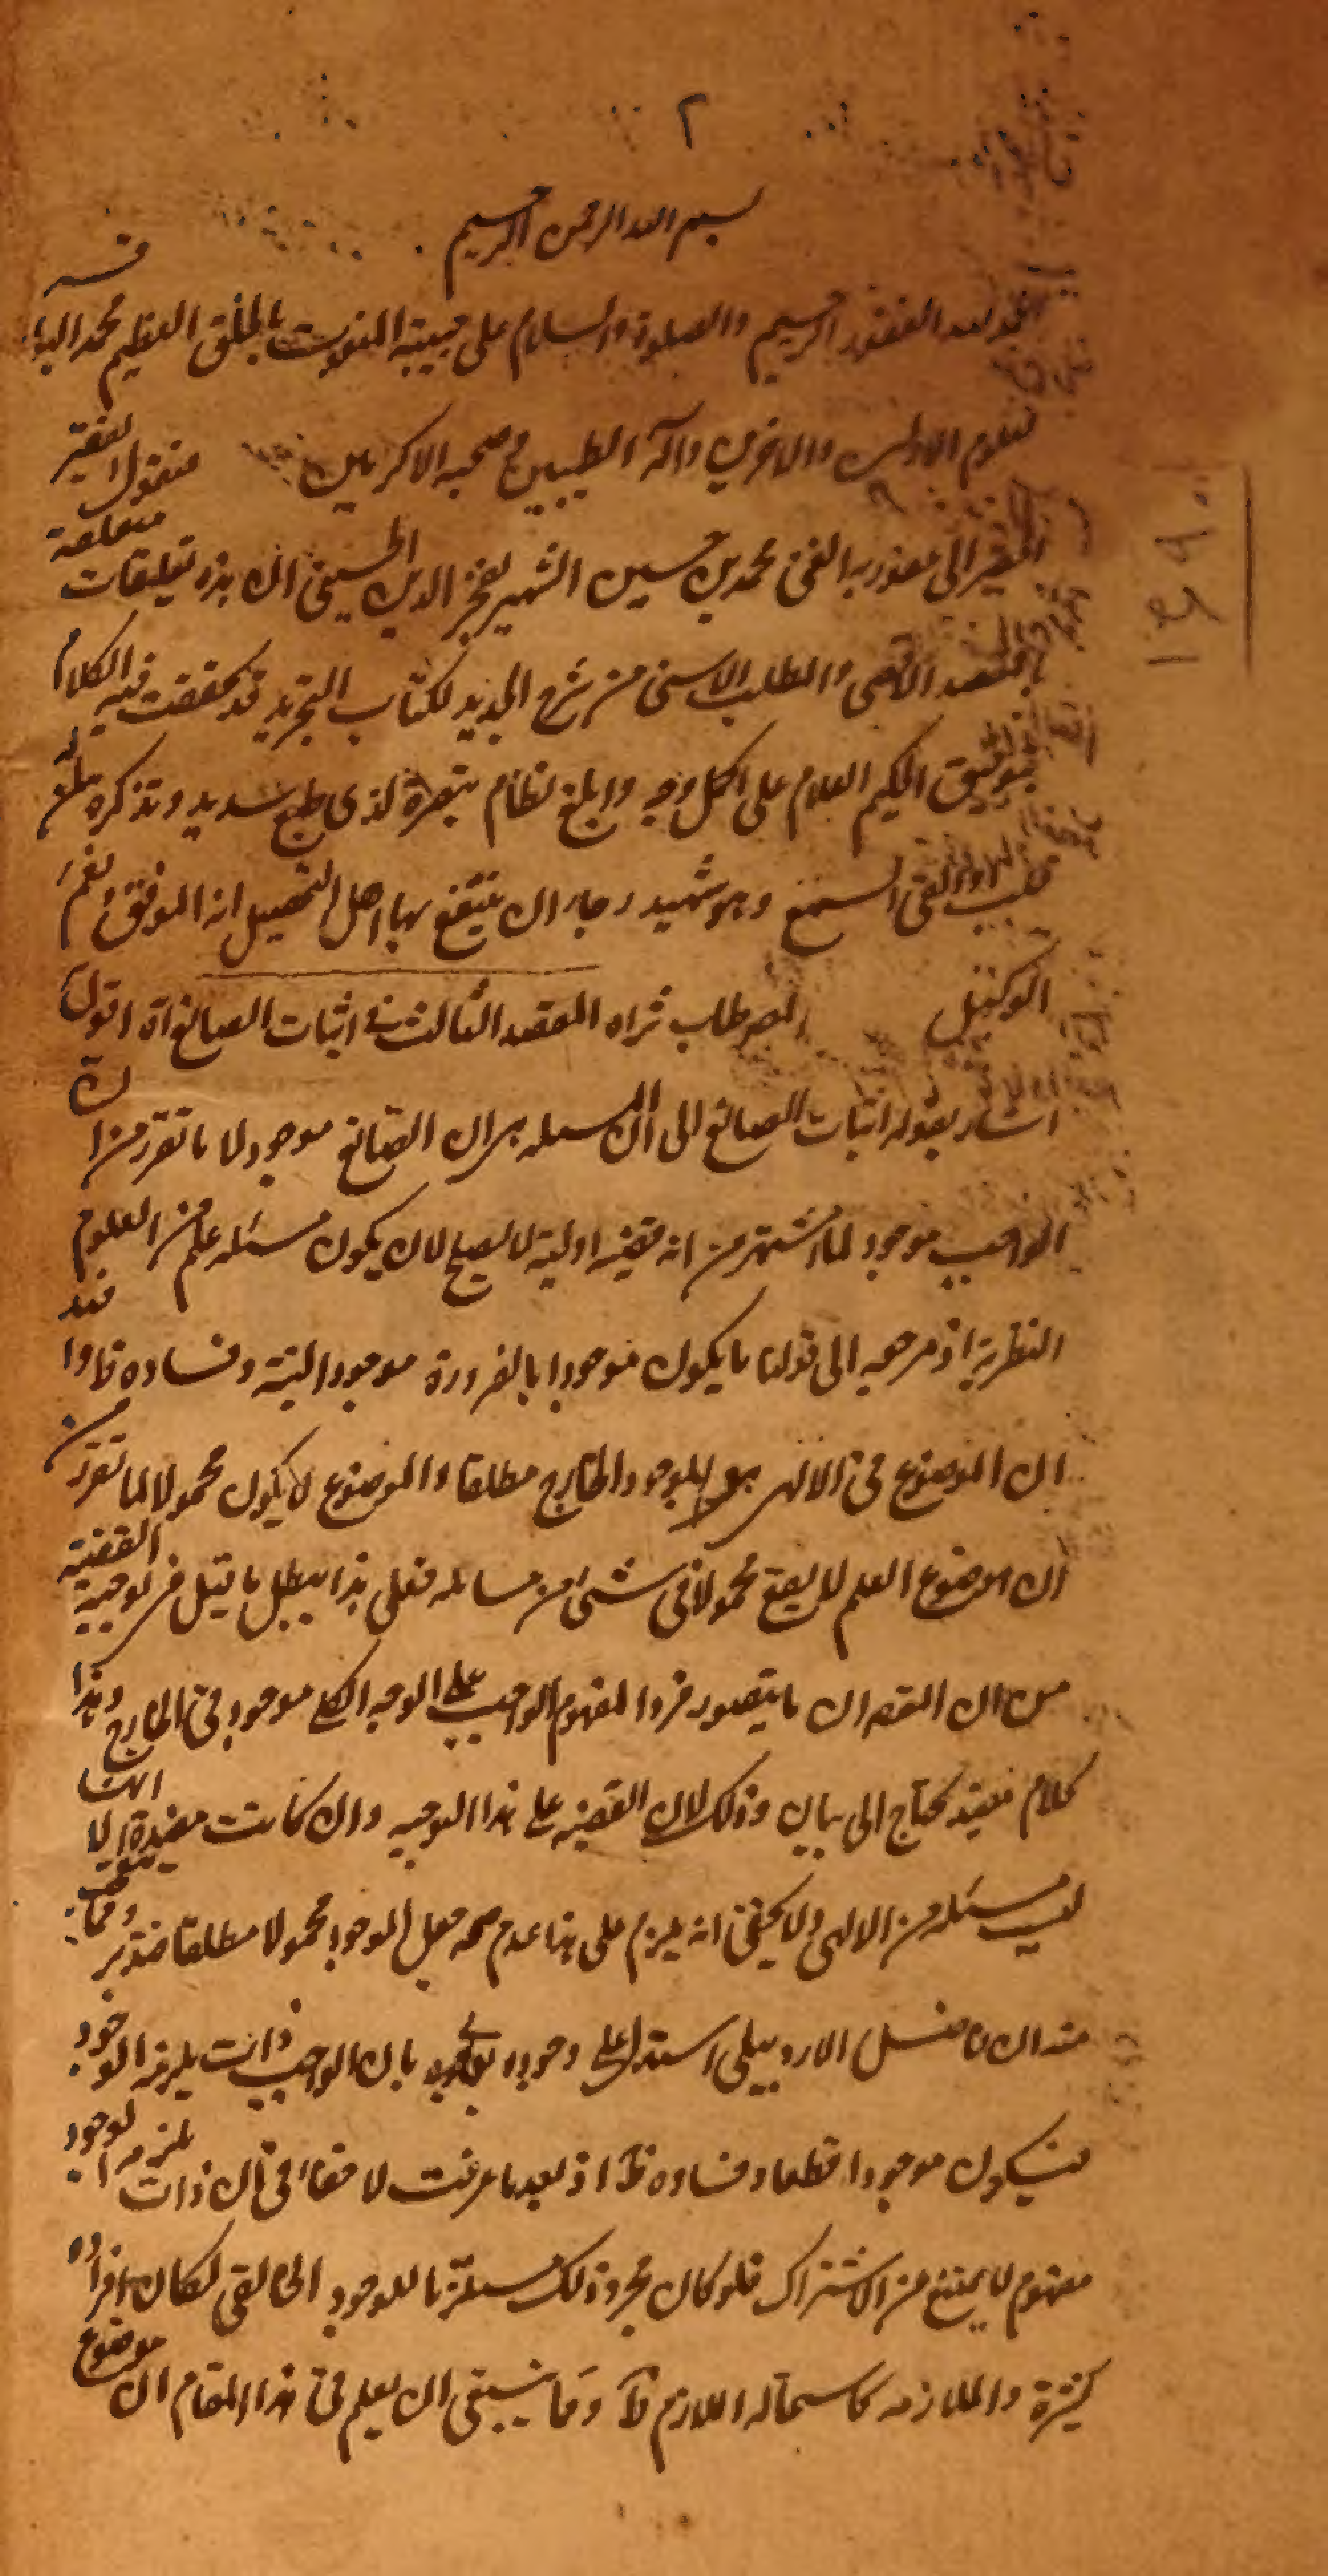 ٢
بسم الله الرحمن الرحيم
الحمد لله الغفور الرحيم والصلوة والسلام على حبيبه المنعوت بالخلق العظيم محمد
لعلوم الاولين والاخرين وآله الطيبين وصحبه الاكرمين فيقول الفقير
الى عفو ربه الغنى محمد بن حسين الشهير بفخر الدين الحسينى ان هذه تعليقات متعلقة
بالمقصد الاقصى والمطلب الاسنى من شرح الجديد لكتاب التجريد قد حققت فيه الكلام
بتوفيق الحكيم العلام على اكمل وجه وابلغ نظام تبصرة لذى طبع سديد وتذكرة لمن له
قلب او القى السمع وهو شهيد رجاء ان ينتفع بها اهل التحصيل انه الموفق ونعم
الوكيل المص طاب ثراه المقصد الثالث فى اثبات الصانع اه اقول
اشار بقوله اثبات الصانع الى ان المسئله هى ان الصانع موجود لا ما تقرر من ان
الواجب موجود لما اشتهر من انه قضية اولية لا يصلح لان يكون مسئله علم من العلوم
النظرية اذ مرجعه الى قولنا ما يكون موجودا بالضرورة موجود البتة وفساده ظ واما عند
ان الموضوع فى الالهى هو الموجود الخارج مطلقا والموضوع لا يكون محمولا لما تقرر من
ان موضوع العلم لا يقع محمولا فى شئ من مسائله فعلى هذا يبطل ما قيل فى توجيه القضية
من ان القصد ان ما يتصور فردا لمفهوم الواجب على الوجه الكلى موجود فى الخارج وهذا
كلام مفيد يحتاج الى بيان وذلك لان القضية على هذا التوجيه وان كانت مفيدة الا انها
ليست مسئله من الالهى ولا يخفى انه يلزم على هذا عدم صحة جعل الموجود محمولا مطلقا فتدبر ومما يتعجب
منه ان فاضل الاردبيلى استدل على وجوده تعالى بان الواجب ذات يلزمه الوجود
فيكون موجودا قطعا وفساده ظ اذ بعد ما عرفت لا خفاء فى ان ذات يلزمه الوجود
مفهوم لا يمتنع من الاشتراك فلو كان مجرد ذلك مستلزما للوجود الخارجى لكان افراده
كثيرة والملازمه كاستحالة اللازم ظ ومما ينبغى ان يعلم فى هذا المقام ان موضوع